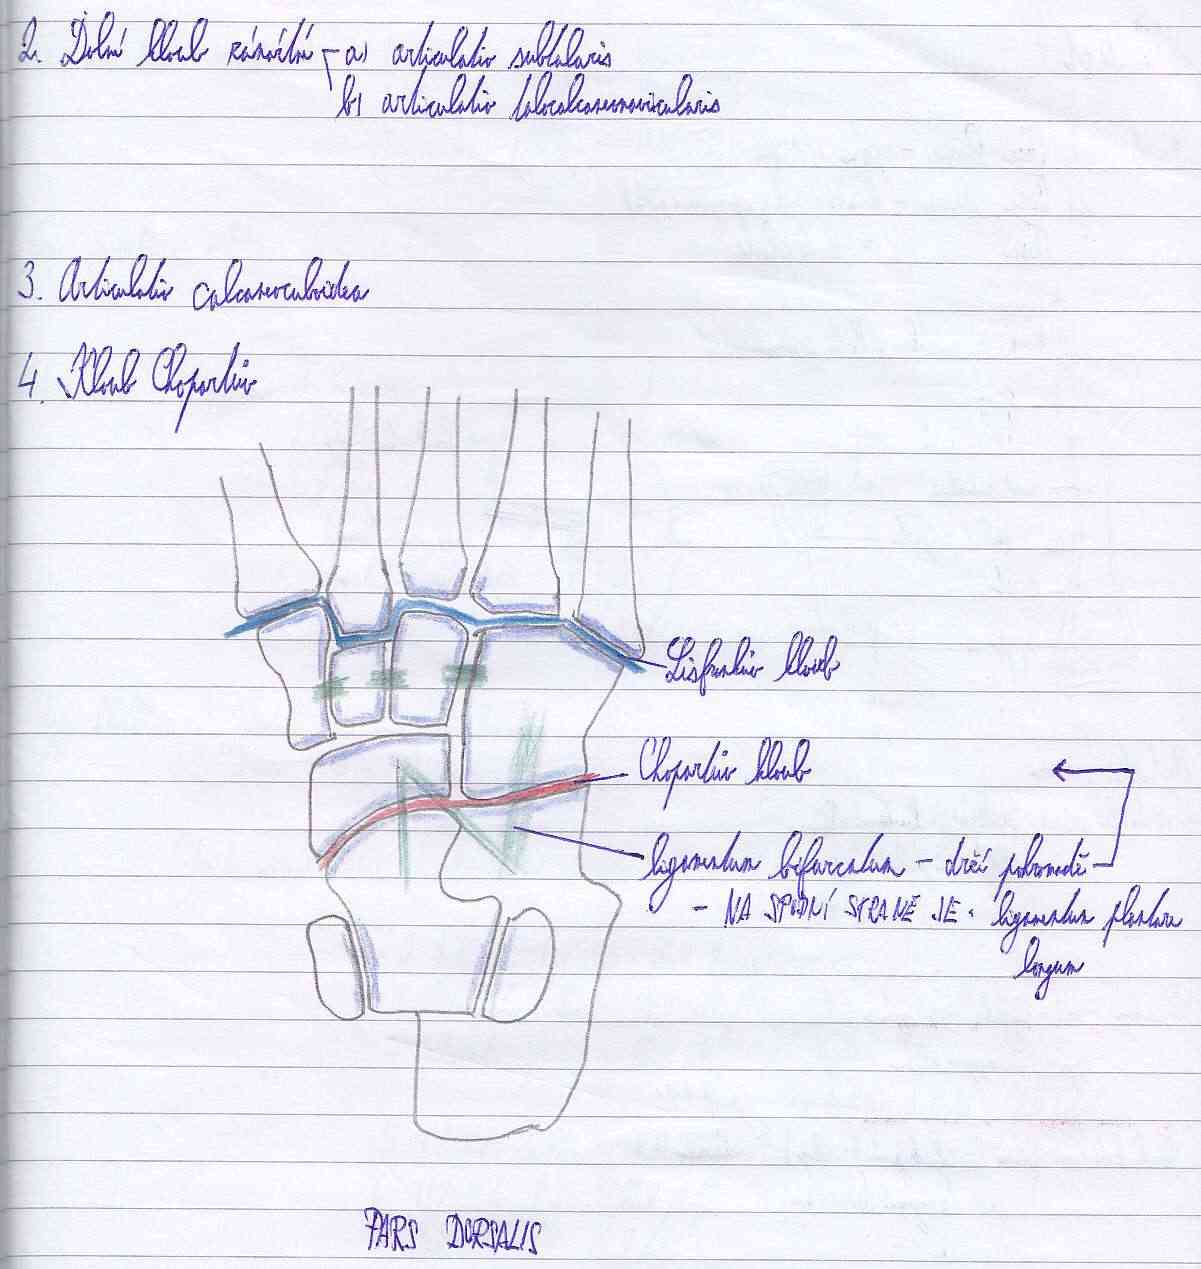 2. Dolní kloub zánártní - a) articulatio subtalaris
b) articulatio talocalcaneonavicularis
3. Articulatio calcaneocuboidea
4. Kloub Chopartův
Lisfrankův kloub
Chopartův kloub
ligamentum bifurcatum - drží pohromadě
- NA SPODNÍ STRANĚ JE: ligamentum plantare
longum
PARS DORSALIS